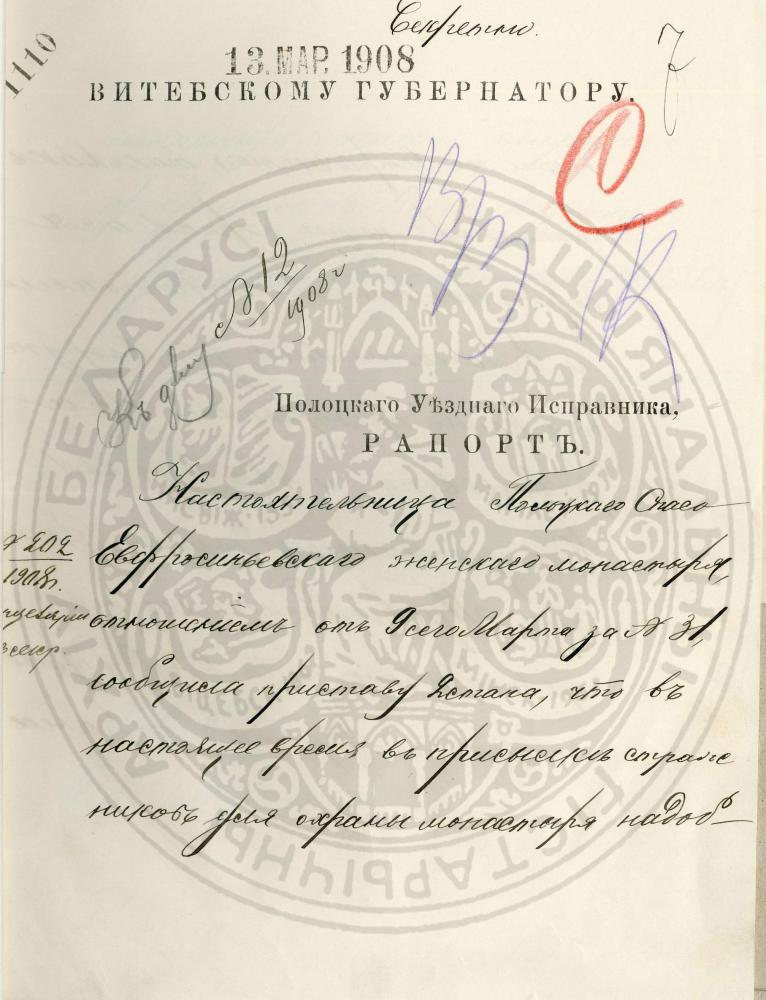 Секретно.
1110
13. МАР. 1908
7
ВИТЕБСКОМУ ГУБЕРНАТОРУ.
Къ делу № 12
1908 г
Полоцкаго Уѣзднаго Исправника,
РАПОРТЪ.
Настоятельница Полоцкаго Спасо
Евфросиньевскаго женскаго монастыря,
№ 202
1908г.
отношеніемъ отъ 9 сего Марта за № 31,
3 секр.
сообщила приставу 2 стана, что въ
настоящее время въ присылкѣ страж
никовъ для охраны монастыря надоб-